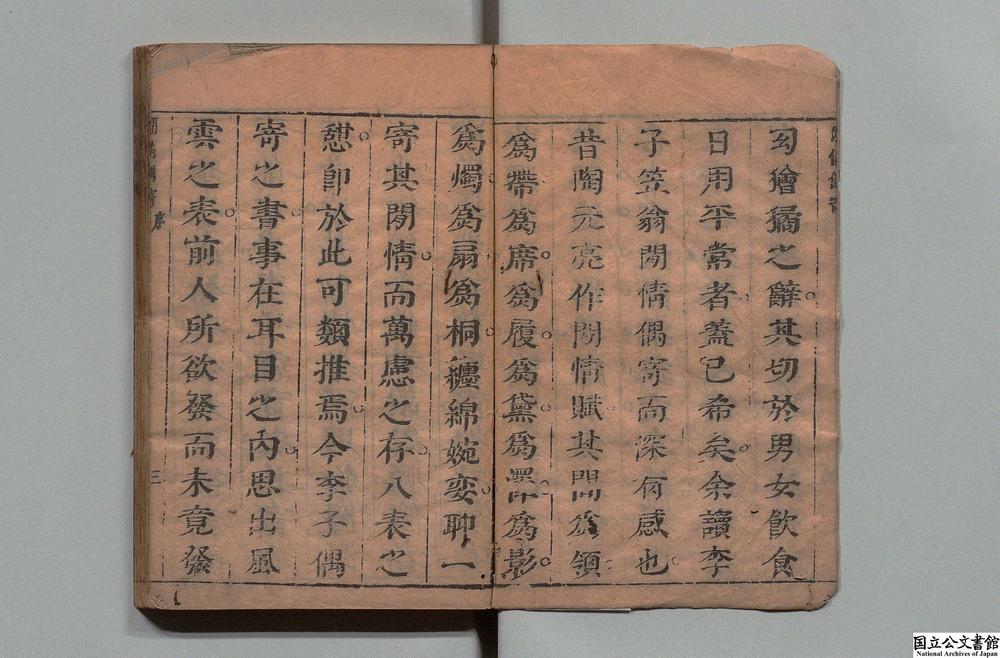 幻獪獝之辭其切於男女飲食
日用平常者蓋已希矣余讀李
子笠翁閒情偶寄而深有感也
昔陶元亮作閒情賦其間爲領
爲帶爲席爲履爲黛爲澤爲影
爲燭爲扇爲桐纏綿婉孌聊一
寄其閒情而萬慮之存八表之
憇卽於此可類推焉今李子偶
寄之書事在耳目之內思出風
雲之表前人所欲發而未竟發
序
三
国立公文書館
National Archives of Japan